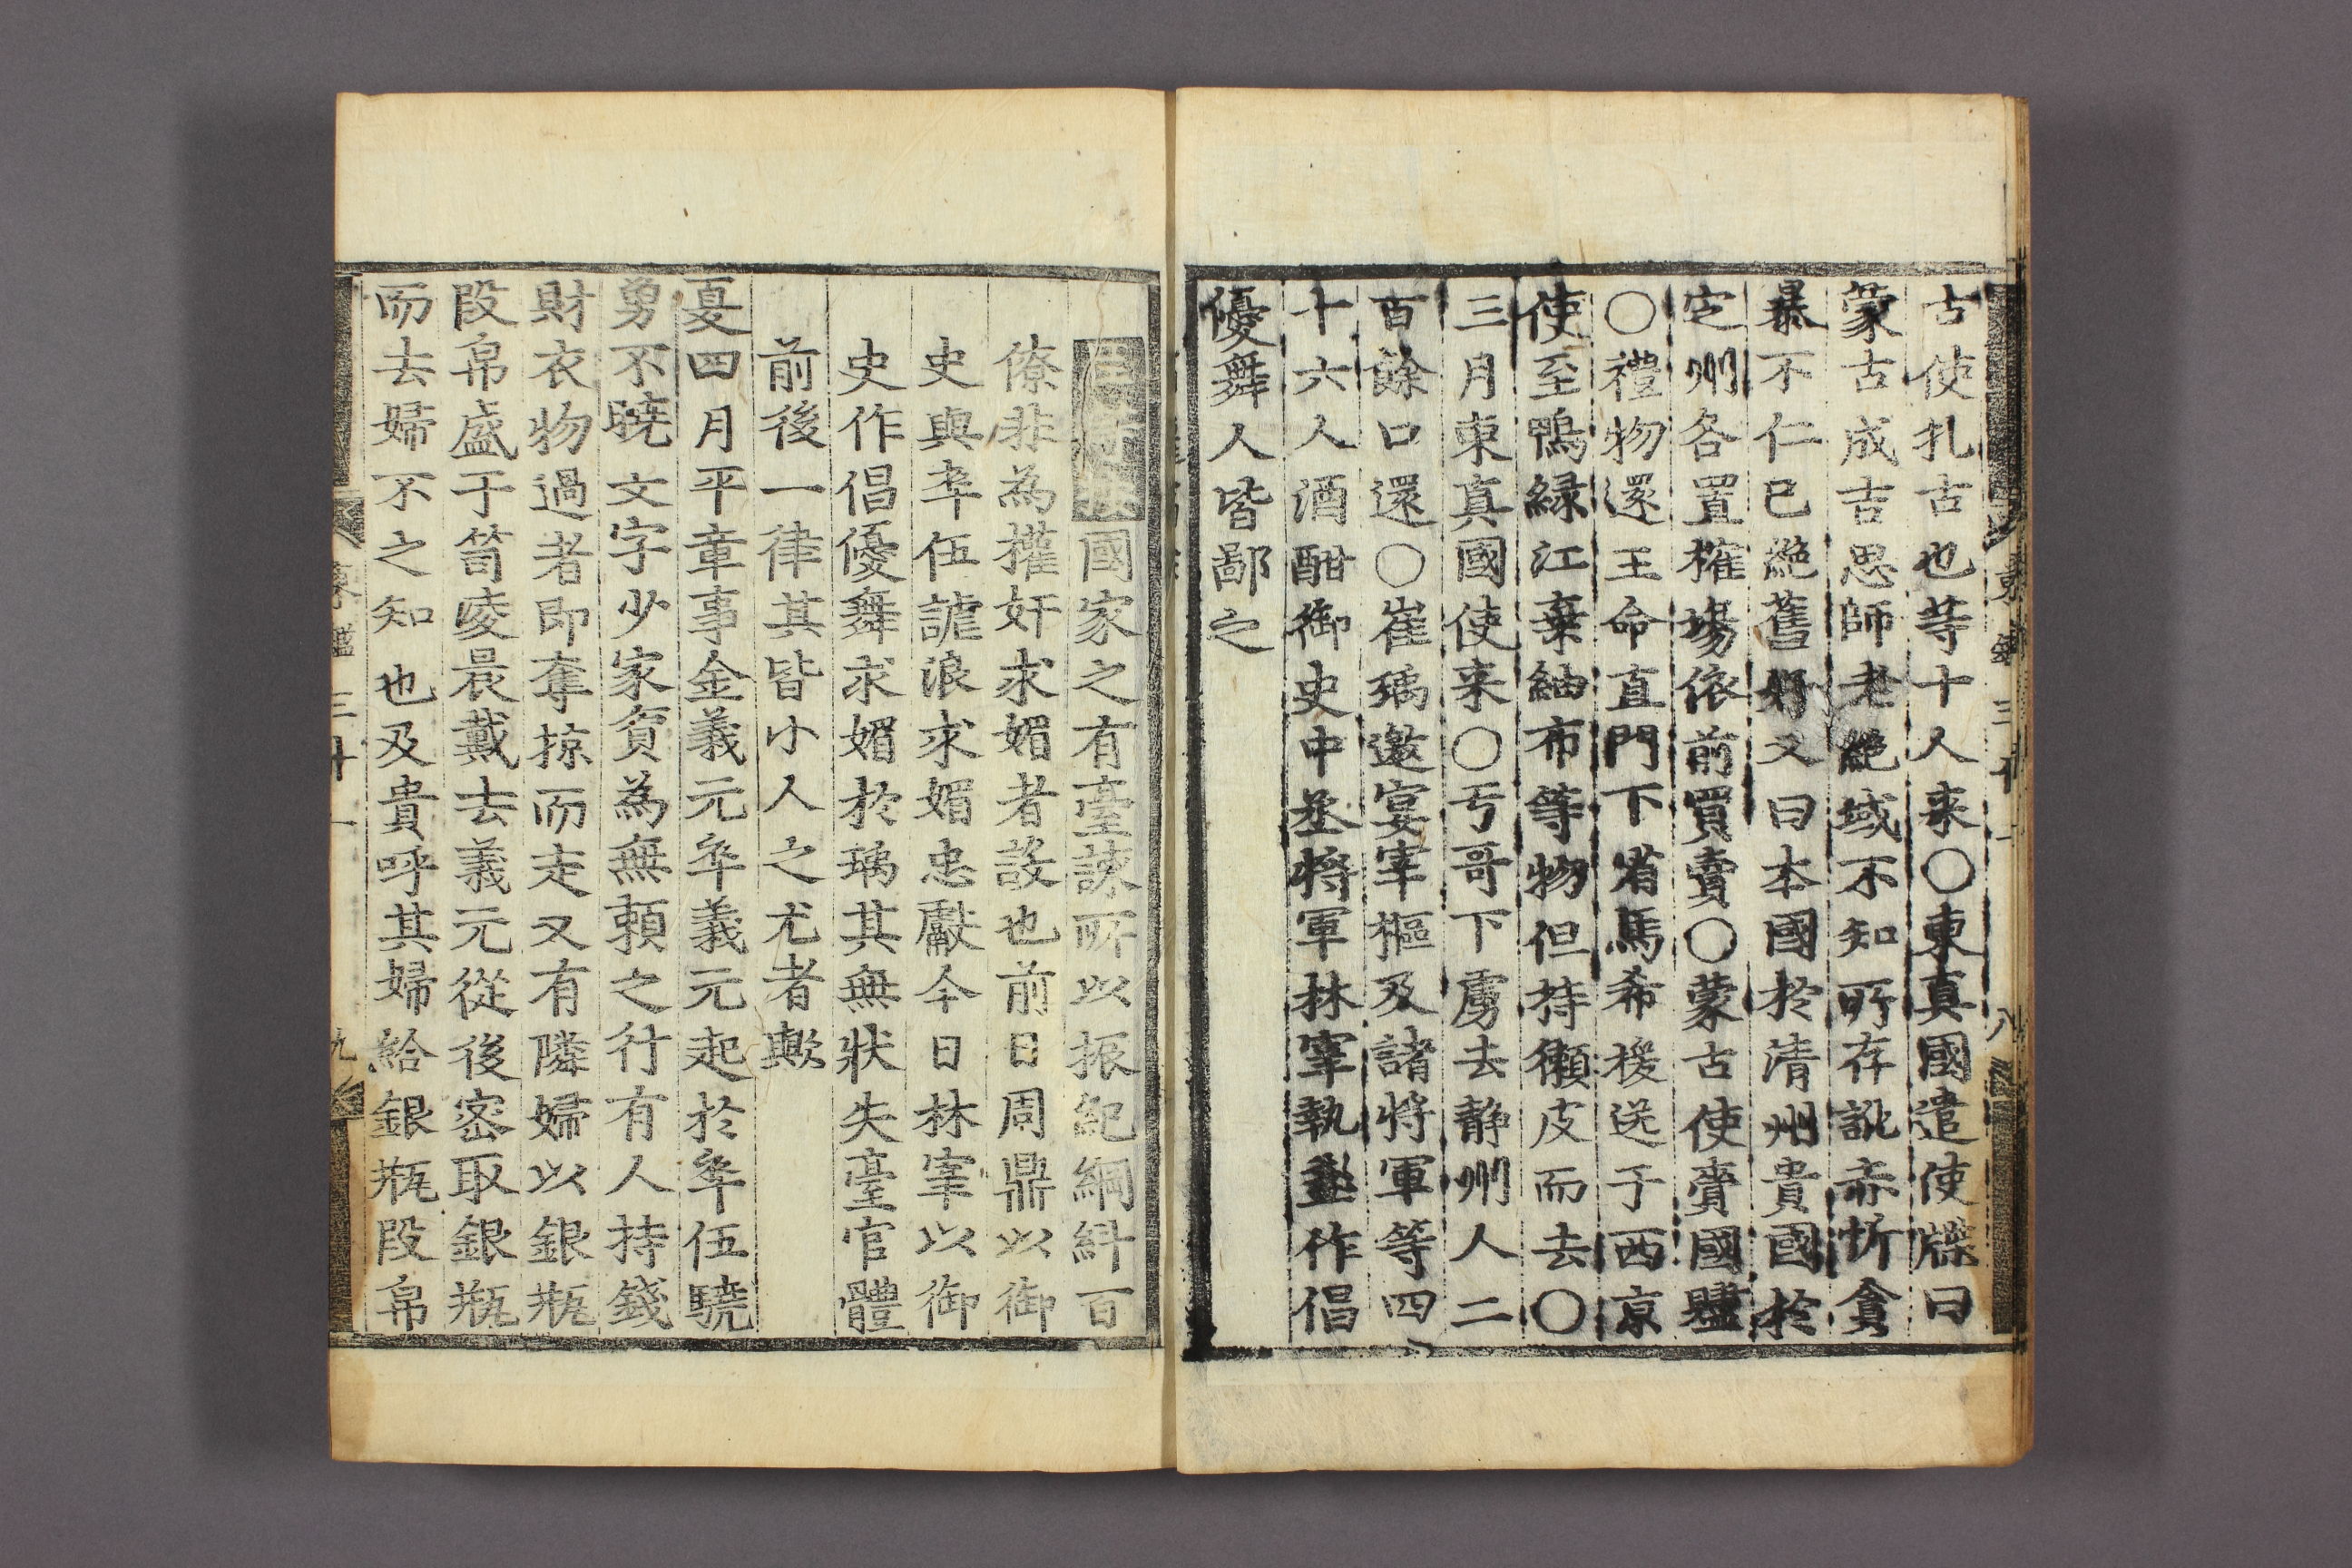 古使札古也等十人来〇東真國遣使牒曰
蒙古成吉思師老絶域不知所存訛赤忻貪
暴不仁已絶舊好又曰本國於清州貴國於
定州各置榷場依前買賣〇蒙古使賫國贐
〇禮物還王命直門下省馬希援送于西京
使至鴨緑江棄紬布等物但持獺皮而去〇
三月東真國使来〇亏哥下虜去静州人二
百餘口還〇崔瑀邀宴宰樞及諸將軍等四
十六人酒酣御史中丞將軍林宰執盞作倡
優舞人皆鄙之
國家之有臺諫所以振紀綱糾百
僚非為權奸求媚者設也前日周鼎以御
史與卒伍謔浪求媚忠獻今日林宰以御
史作倡優舞求媚於瑀其無狀失臺官體
前後一律其皆小人之尤者歟
夏四月平章事金義元卒義元起於卒伍驍
勇不曉文字少家貧為無頼之行有人持錢
財衣物過者即奪掠而走又有隣婦以銀瓶
段帛盛于笥凌晨戴去義元從後密取銀瓶
而去婦不之知也及貴呼其婦給銀瓶段帛